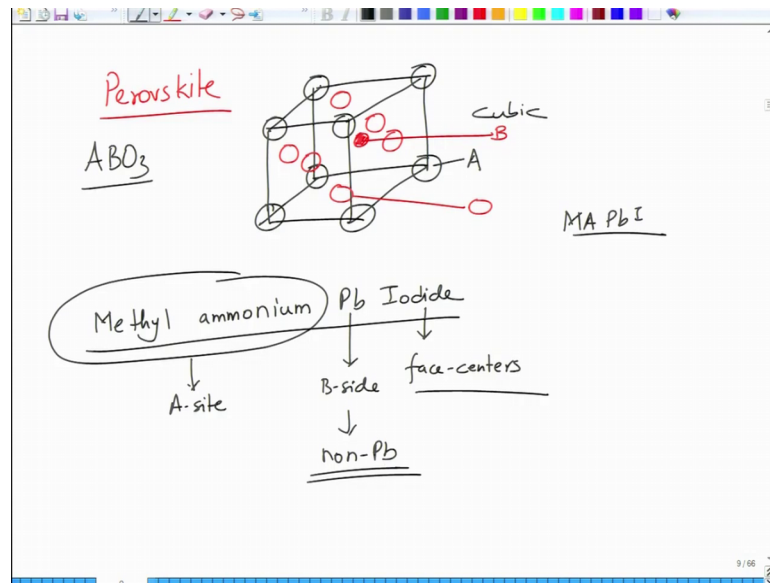 Perovskite
cubic
B
ABO3
A
O
MA Pb I
Methyl ammonium Pb Iodide
A-site
B-side
face-centers
non-Pb
9/66